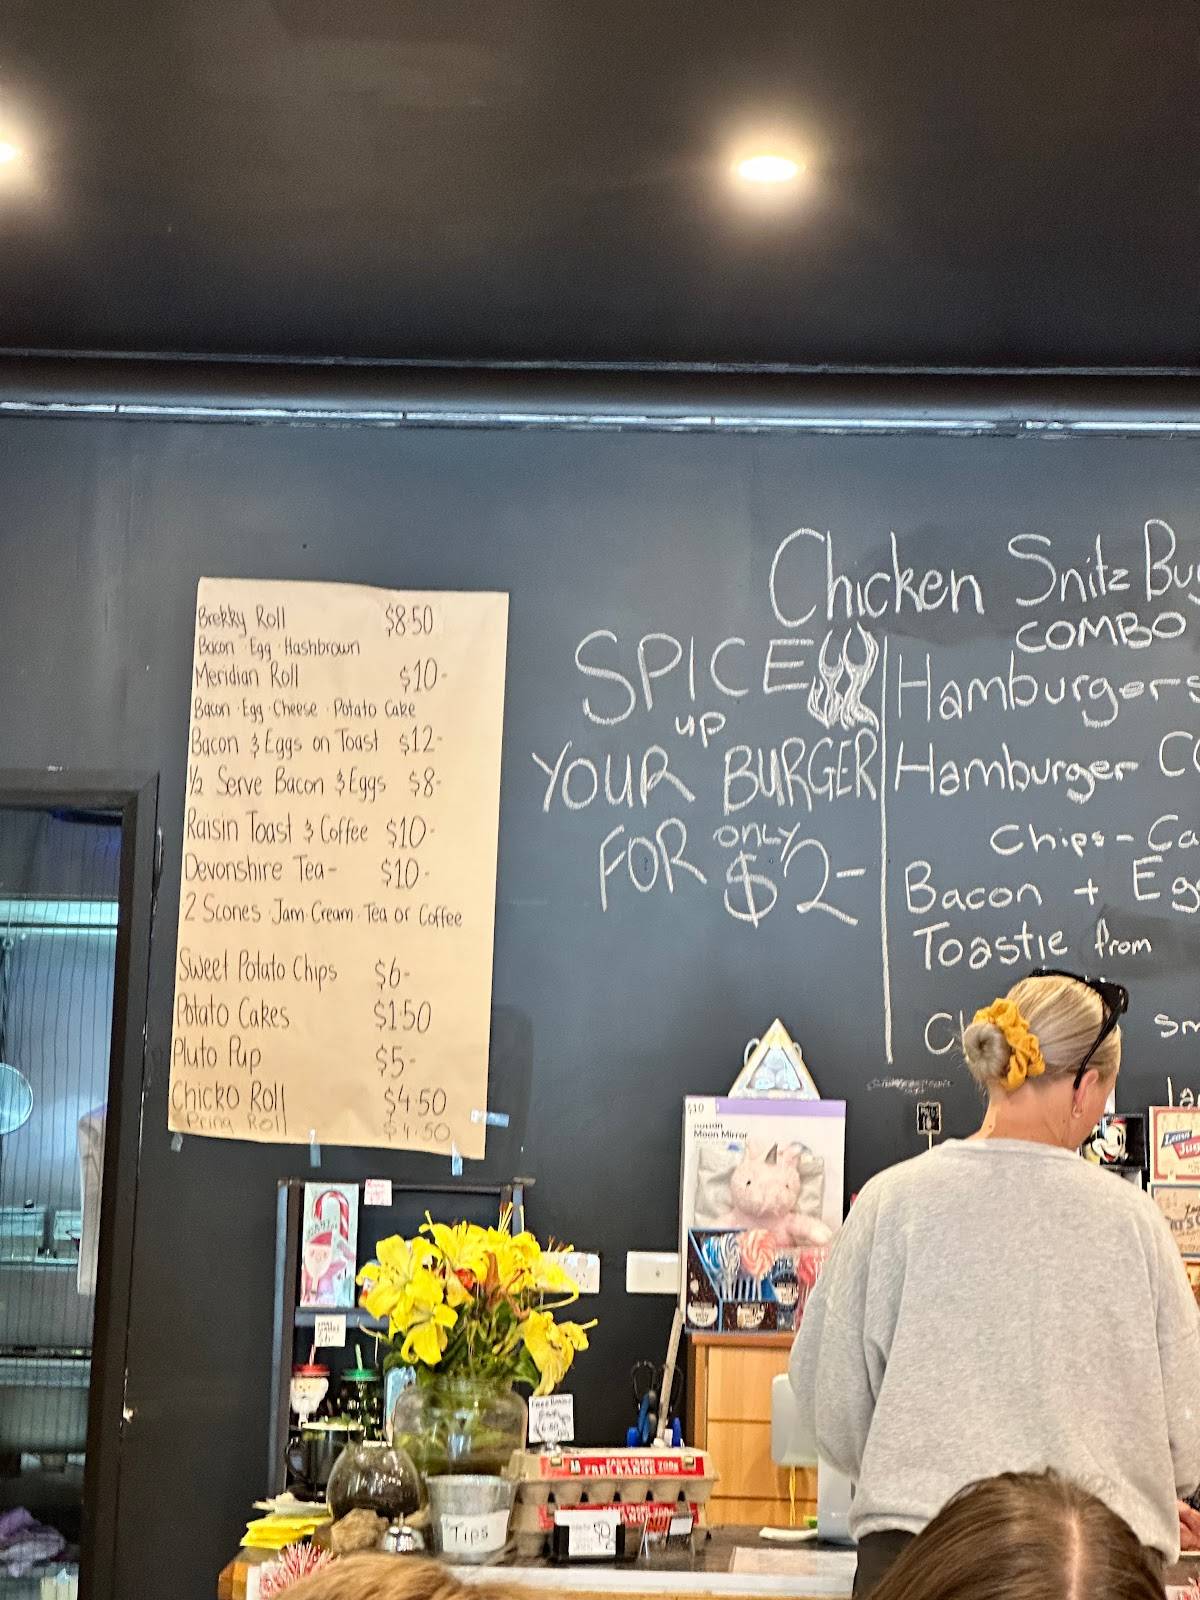 Brekky Roll $8.50
Bacon · Egg · Hashbrown
Meridian Roll $10-
Bacon · Egg · Cheese · Potato Cake
Bacon & Eggs on Toast $12-
½ Serve Bacon & Eggs $8-
Raisin Toast & Coffee $10-
Devonshire Tea- $10-
2 Scones · Jam · Cream · Tea or Coffee
Sweet Potato Chips $6-
Potato Cakes $1.50
Pluto Pup $5-
Chicko Roll $4.50
Pring Roll $4.50
SPICE
up
YOUR BURGER
FOR ONLY
$2-
Chicken Snitz Bu
COMBO
Hamburgers
Hamburger CO
Chips - Ca
Bacon + Egg
Toastie from
C
Sm
La
$10
Moon Mirror
Tips
FARM FRESH 700g
FREE RANGE